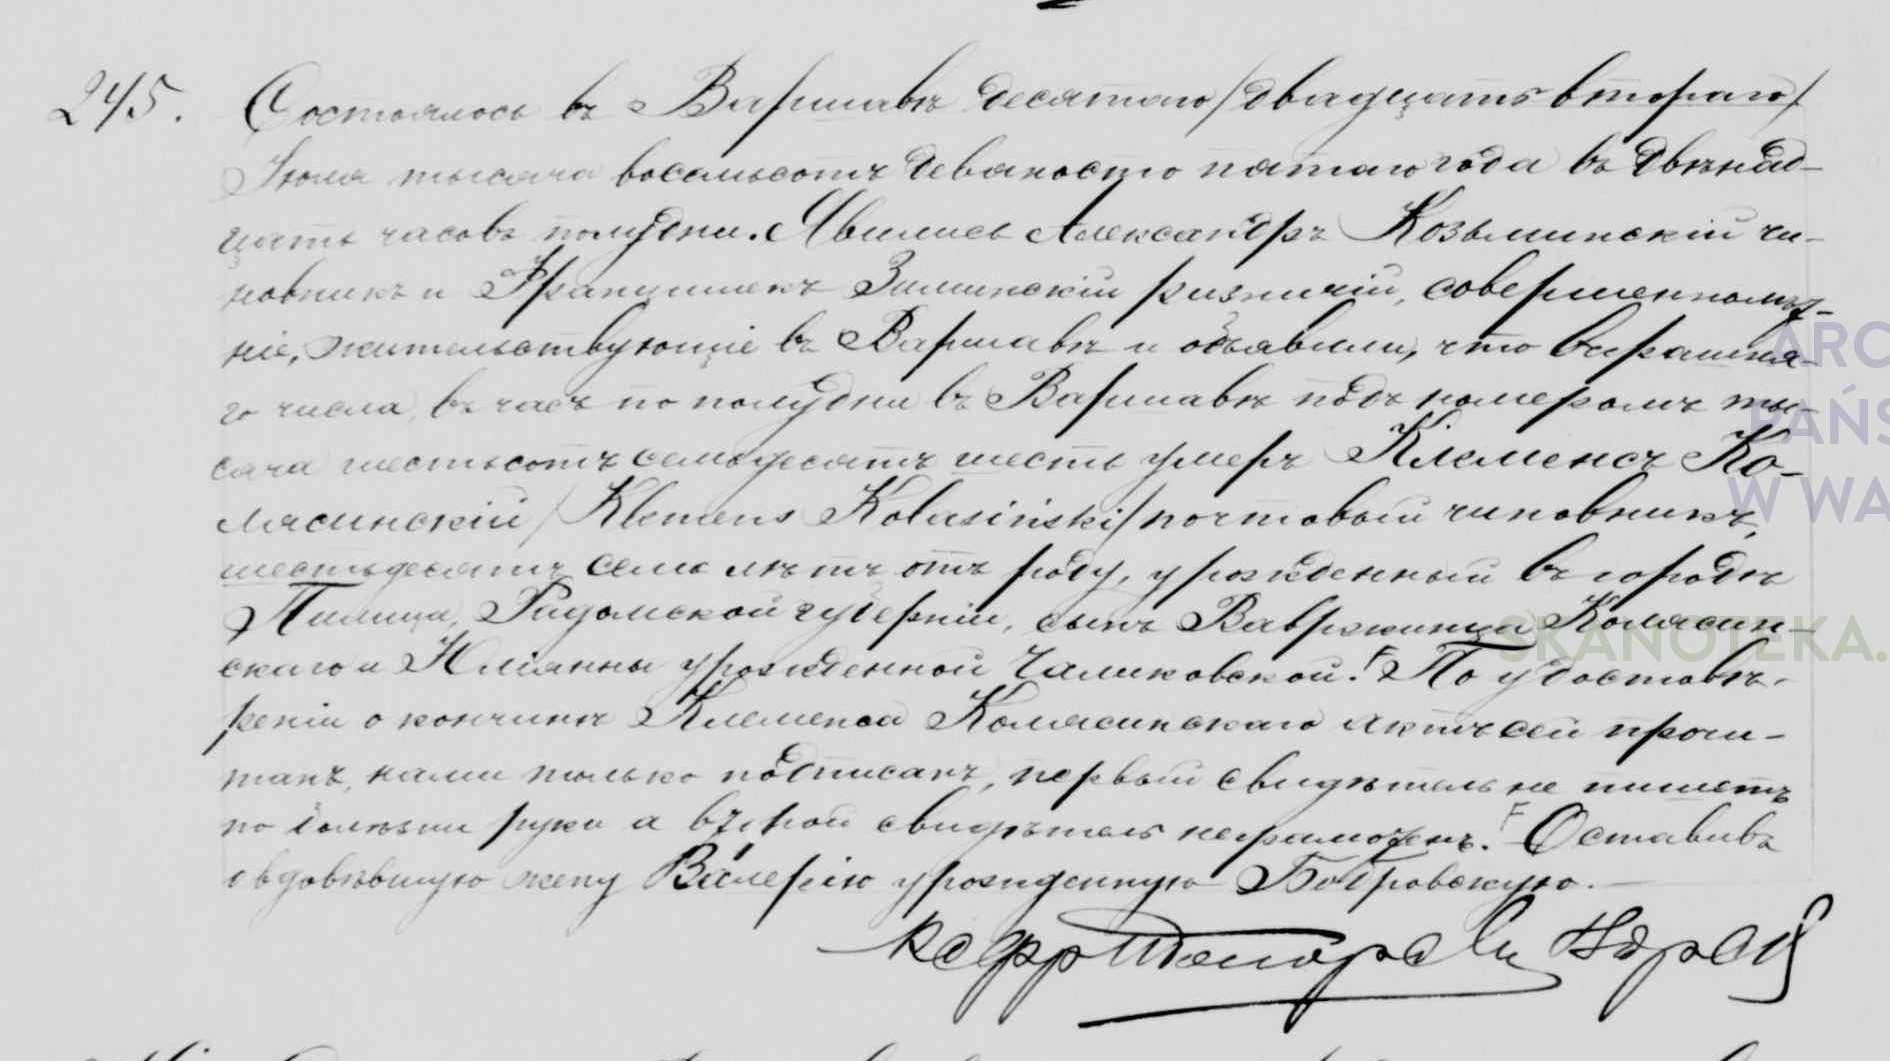 245. Состоялось въ Варшавѣ десятаго /двадцать втораго/
Іюля тысяча восемьсотъ девяносто пятаго года въ двѣнад-
цать часовъ полудни. Явились Александръ Козьминскій чи-
новникъ и Францишекъ Зиминскій ризничій, совершеннолѣт-
ніе, жительствующіе въ Варшавѣ и объявили, что вчерашня-
го числа, въ часъ по полудни въ Варшавѣ подъ номеромъ ты-
сяча шестьсотъ семьдесятъ шесть умеръ Клеменсъ Ко-
лясинскій /Klemens Kolasiński/ почтовый чиновникъ,
шестьдесятъ семь лѣтъ отъ роду, урожденный въ городѣ
Пилица, Радомской губерніи, сынъ Вавржинца Колясин-
скаго и Юліянны урожденной Чаликовской. F По удостовѣ-
реніи о кончинѣ Клеменса Колясинскаго актъ сей прочи-
танъ, нами только подписанъ, первый свидѣтель не пишетъ
по болѣзни руки а второй свидѣтель неграмотенъ. F Оставивъ
овдовѣвшую жену Валерію урожденную Бобровскую.
ARC
PAŃS
W WA
SKANOTEKA.